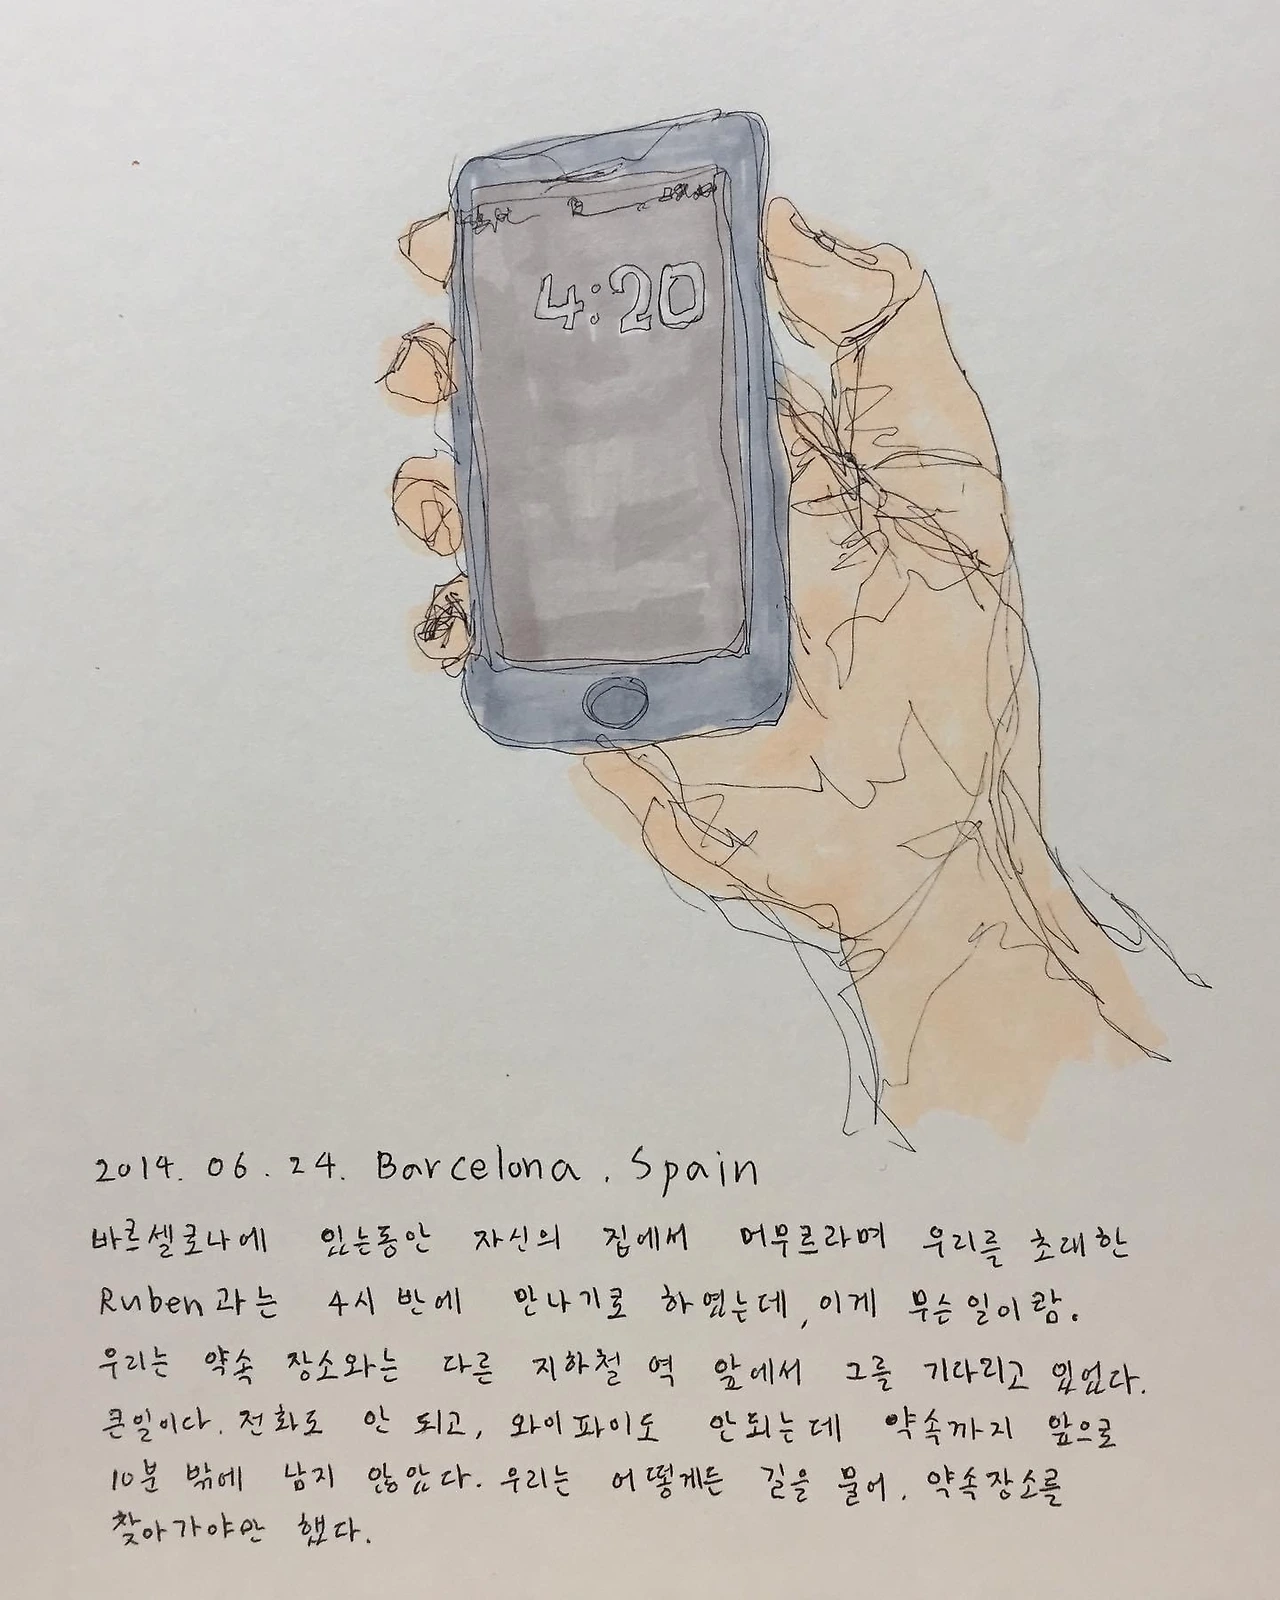 4:20
2014. 06. 24. Barcelona. Spain
바르셀로나에 있는동안 자신의 집에서 머무르라며 우리를 초대한
Ruben과는 4시 반에 만나기로 하였는데, 이게 무슨일이람.
우리는 약속 장소와는 다른 지하철 역 앞에서 그를 기다리고 있었다.
큰일이다. 전화도 안 되고, 와이파이도 안되는데 약속까지 앞으로
10분 밖에 남지 않았다. 우리는 어떻게든 길을 물어, 약속장소를
찾아가야만 했다.